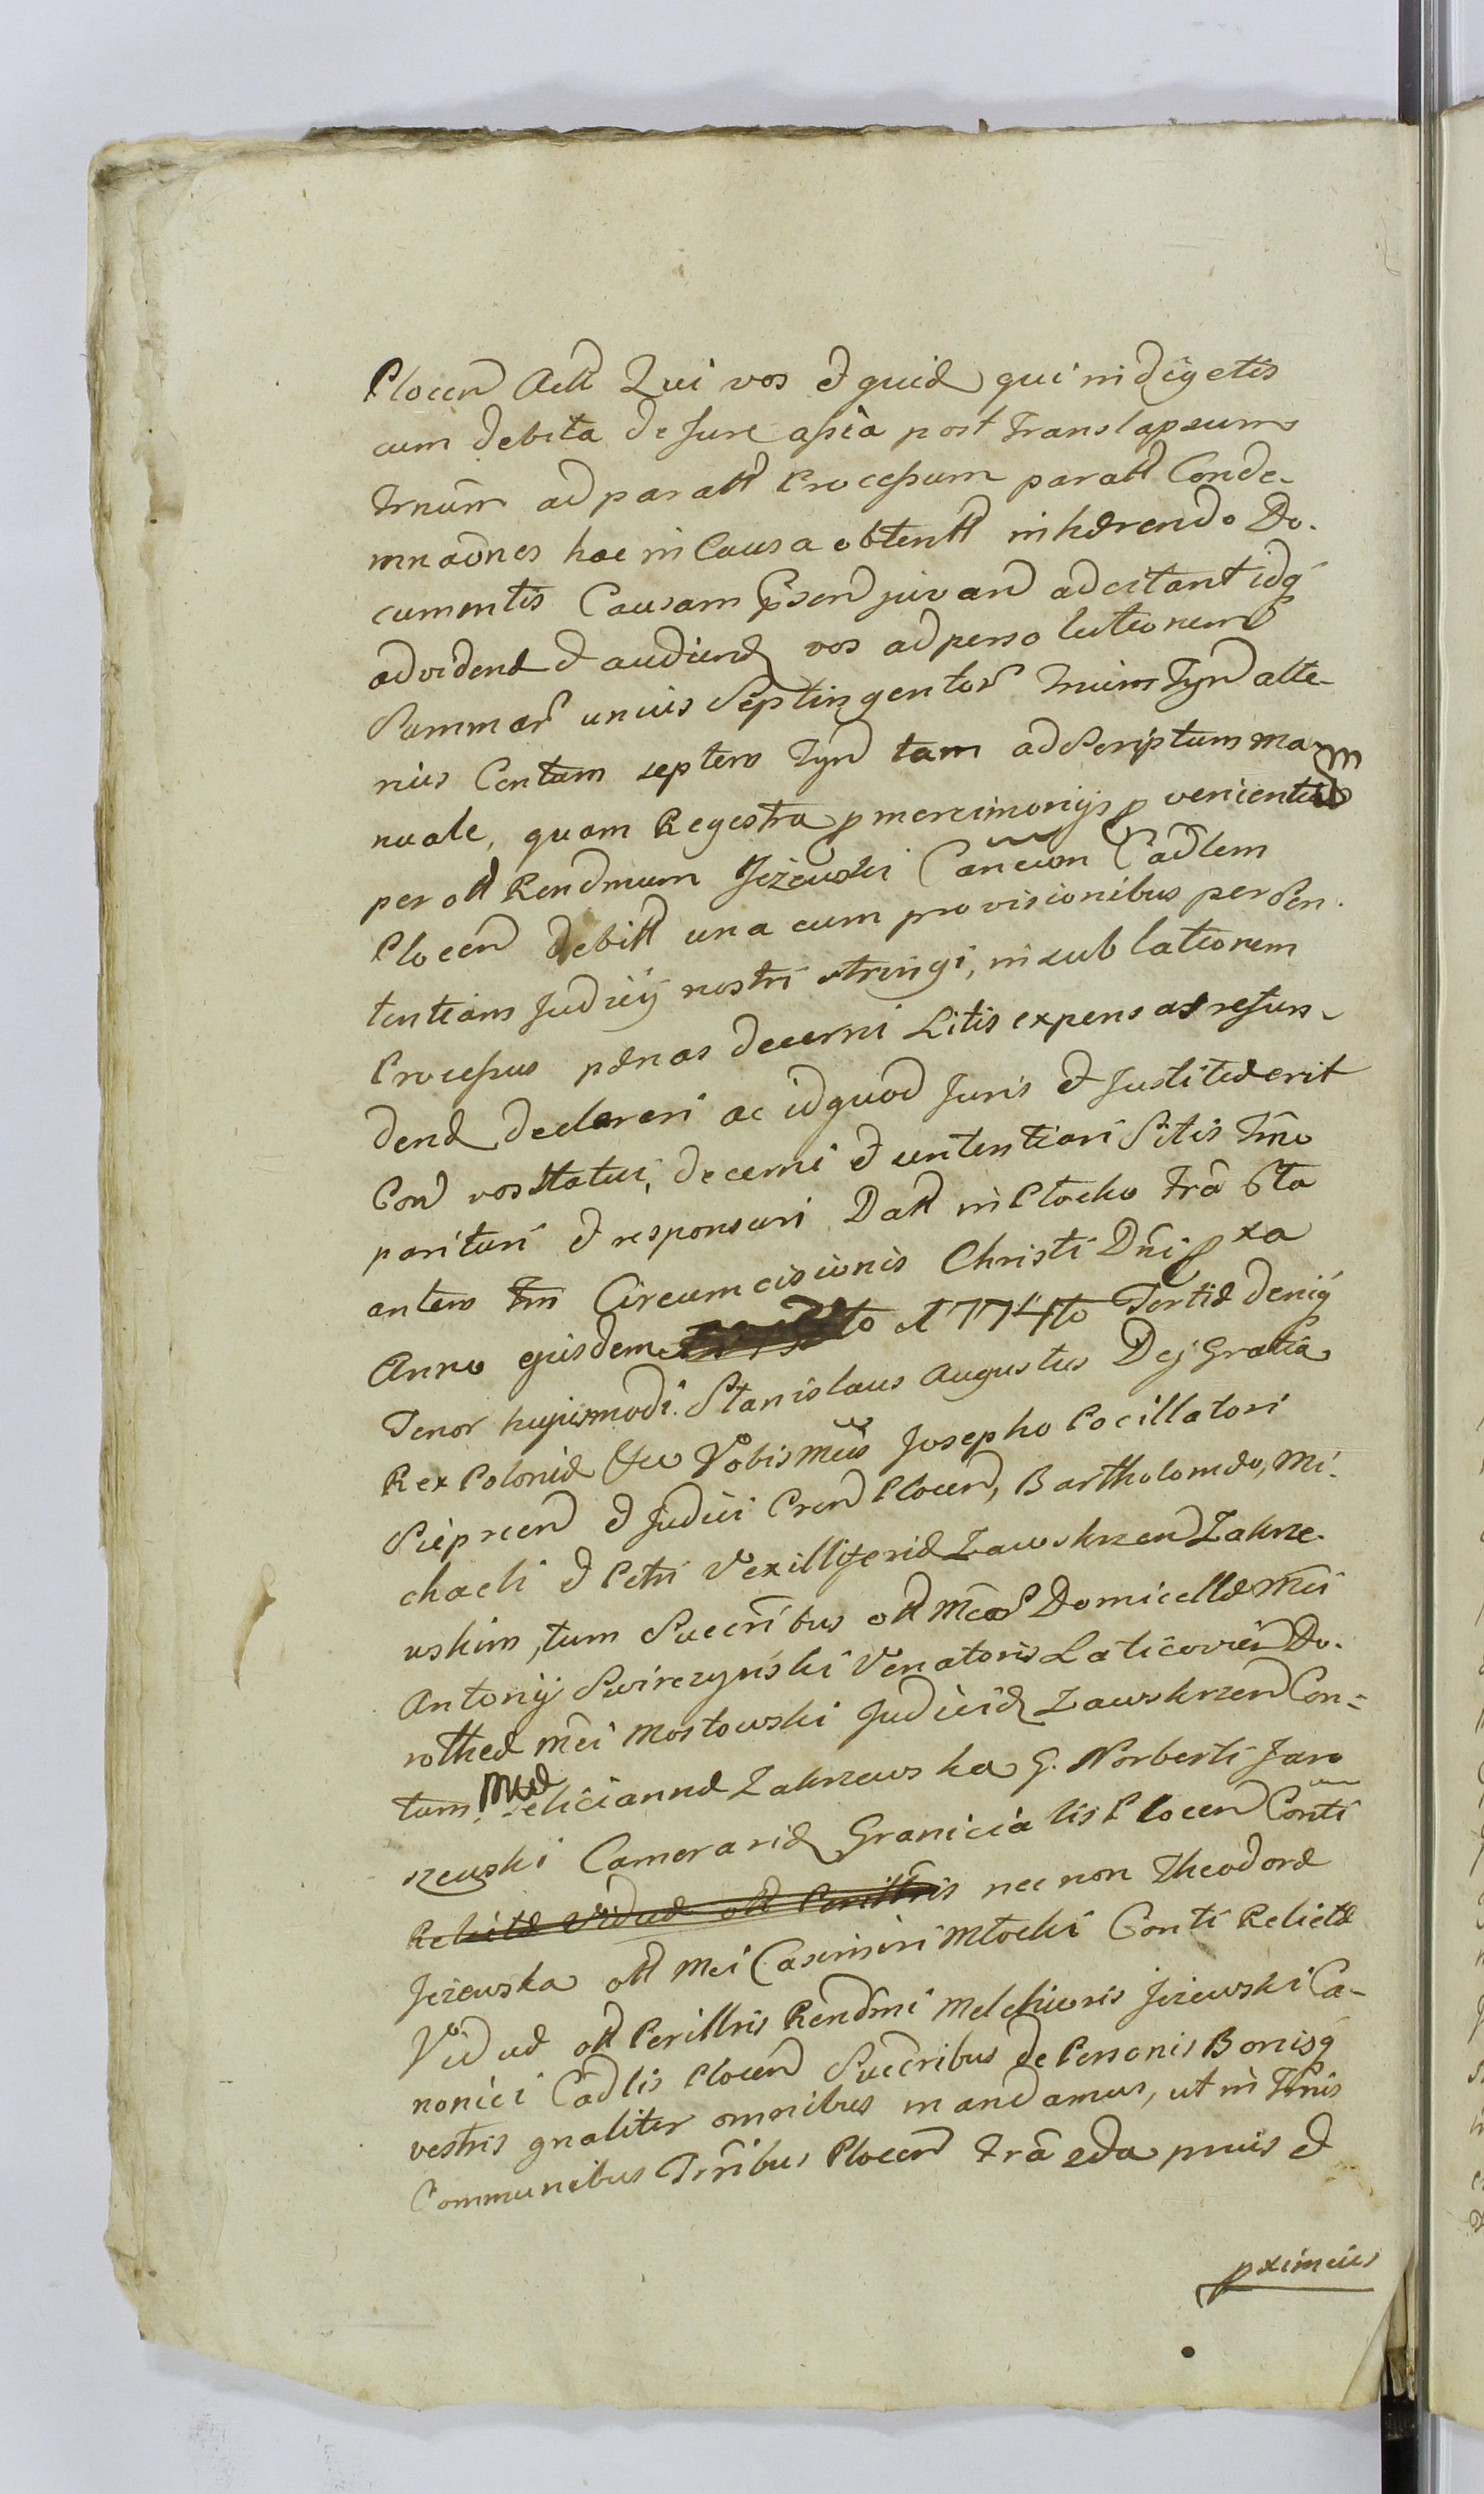 Plocen Actt Qui vos et quid qui indigetis
cum debita de Jure assia post translapsum
trnum ad paratt Processum paratt Conde-
mnaones hac in Causa obtentt inhærendo Do-
cumentis Causam Psen juvand adcitant idq
advidend et audiend vos ad persolutionem
Summar unius Septingentor trium Tyn alte-
rius Centum septem Tyn tam ad Scriptum ma-
nuale, quam Regestra p mercimonijs p venientem
per ott Rendmum Jeżewski Cancum Cadlem
Plocen debitt una cum provisionibus per Sen-
tentiam Judicij nostri stringi, in sublationem
Processus pænas decerni Litis expensas refun-
dend declarari ac id quod Juris et Justitiæ erit
Con vos statui, decerni et sententiari Sitis trno
parituri et responsuri Datt in Płocko fra 6ta
antem fm Circumcisionis Christi Dni pxa
Anno ejusdem 1774to Tertiæ deniq
Tenor hujusmodi. Stanislaus Augustus Dej Gratia
Rex Poloniæ &c Vobis Mcis Josepho Pocillatori
Sieprcen et Judici Cren Plocen, Bartholomæo, Mi-
chaeli et Petri Vexilliferid Zawskrzen Zakrze-
wskim, tum Succribus ott Mcar Domicellæ Mci
Antonij Swirczyński Venatoris Laticovien Do-
rotheæ Mci Mostowski Judicid Zawskrzen Con-
tum Mcæ Feliciannæ Zakrzewska G. Norberti Jaro
szewski Camerarid Granicialis Plocen Conti
Relictæ Viduæ ott Perillris nec non Theodoræ
Jeżewska ott Mci Casimiri Młocki Conti Relictæ
Viduæ ott Perillris Rendmi Melchioris Jeżewski Ca-
nonici Cadlis Plocen Succribus de Personis Bonisq
vestris gnaliter omnibus mandamus, ut in Trnis
Communibus Trribus Plocen fra 2da pmis et
pximius